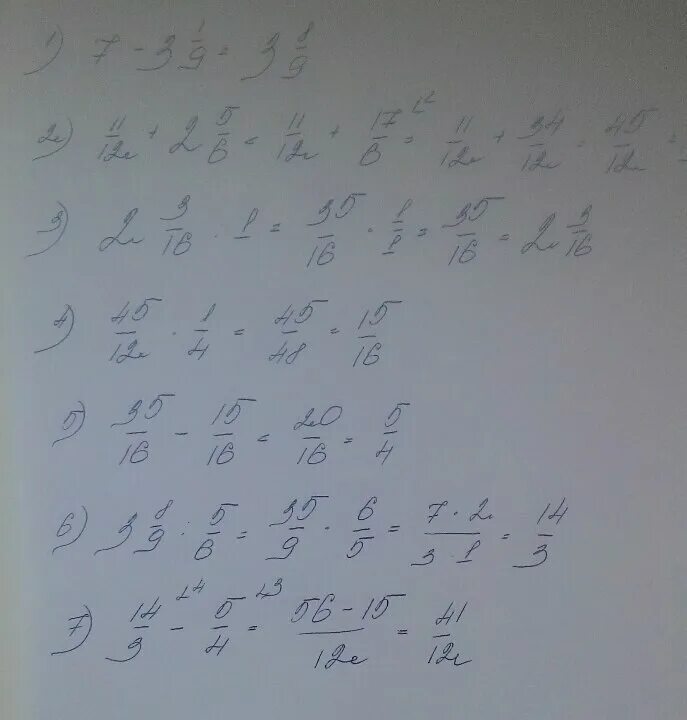 1) 7 - 3 1/9 = 3 8/9
2) 11/12 + 2 5/6 = 11/12 + 17/6 ^2 = 11/12 + 34/12 = 45/12 =
3) 2 3/16 · 1 = 35/16 · 1/1 = 35/16 = 2 3/16
4) 45/12 · 1/4 = 45/48 = 15/16
5) 35/16 - 15/16 = 20/16 = 5/4
6) 3 8/9 : 5/6 = 35/9 · 6/5 = 7·2/3·1 = 14/3
7) 14/3 ^4 - 5/4 ^3 = 56-15/12 = 41/12